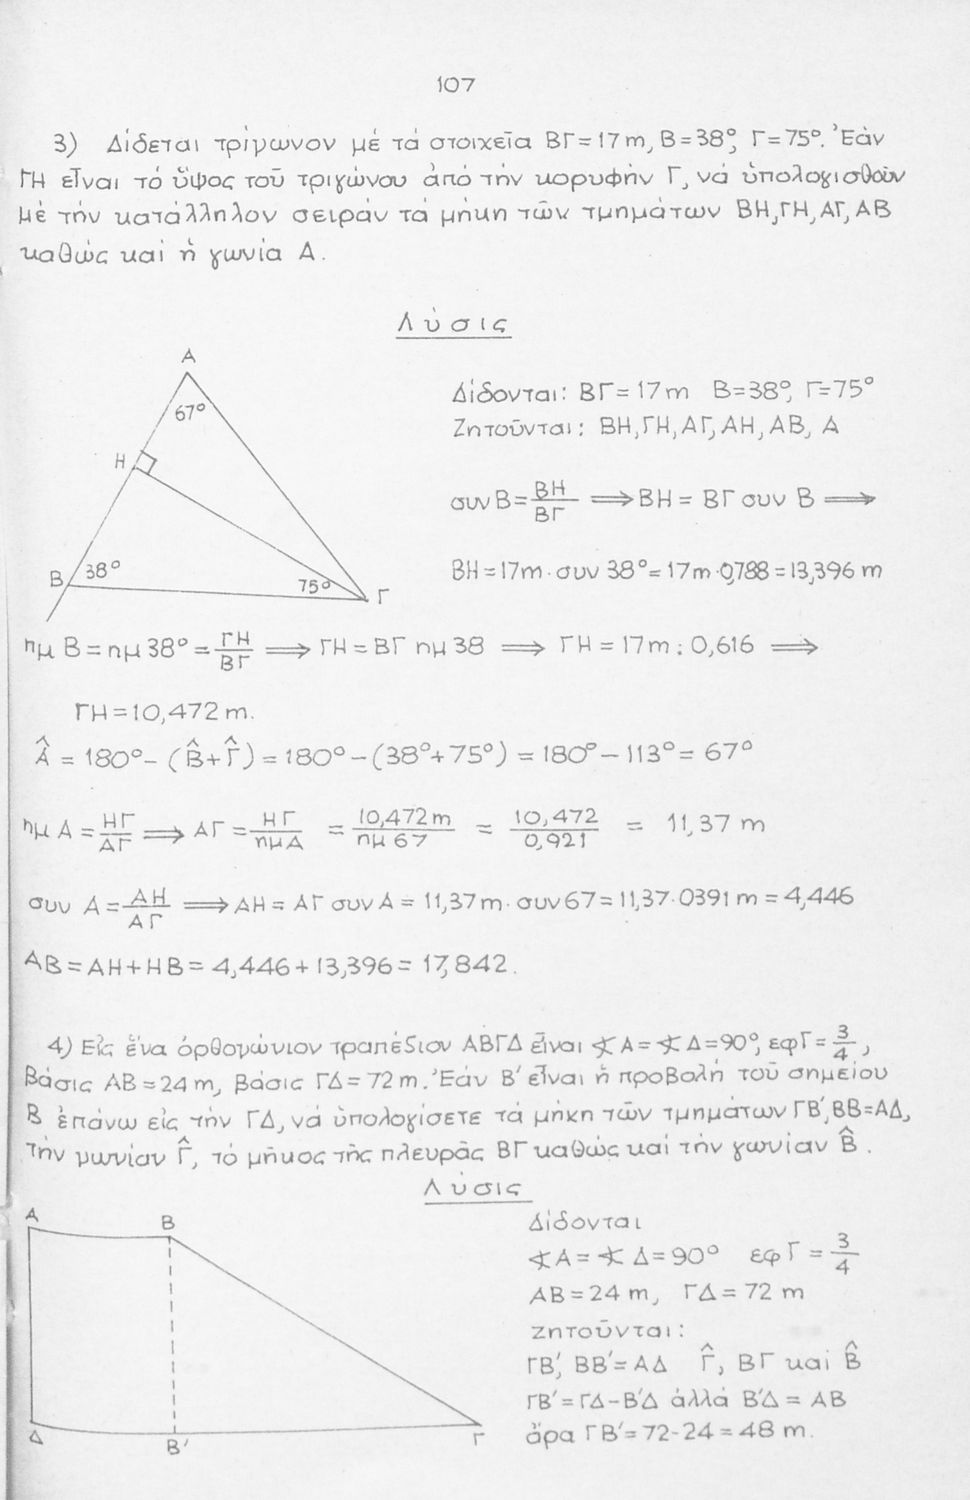 107
3) Δίδεται τρίγωνον μέ τά στοιχεῖα ΒΓ=17m, Β=38°, Γ=75°. Ἐάν
ΓΗ εἶναι τό ὕψος τοῦ τριγώνου ἀπό τήν κορυφήν Γ, νά ὑπολογισθοῦν
μέ τήν κατάλληλον σειράν τά μήκη τῶν τμημάτων ΒΗ, ΓΗ, ΑΓ, ΑΒ
καθώς καί ἡ γωνία Α.
Λύσις
Α
67°
Η
Β 38°
75° Γ
Δίδονται: ΒΓ=17m Β=38°, Γ=75°
Ζητοῦνται: ΒΗ, ΓΗ, ΑΓ, ΑΗ, ΑΒ, Α
συν Β = ΒΗ/ΒΓ ⟹ ΒΗ = ΒΓ συν Β ⟹
ΒΗ = 17m · συν 38° = 17m · 0,788 = 13,396 m
ημ Β = ημ 38° = ΓΗ/ΒΓ ⟹ ΓΗ = ΒΓ ημ 38 ⟹ ΓΗ = 17m : 0,616 ⟹
ΓΗ = 10,472 m.
Â = 180° - (Β̂ + Γ̂) = 180° - (38° + 75°) = 180° - 113° = 67°
ημ Α = ΗΓ/ΑΓ ⟹ ΑΓ = ΗΓ/ημΑ = 10,472 m/ημ 67 = 10,472/0,921 = 11,37 m
συν Α = ΑΗ/ΑΓ ⟹ ΑΗ = ΑΓ συν Α = 11,37 m · συν 67 = 11,37 · 0391 m = 4,446
ΑΒ = ΑΗ + ΗΒ = 4,446 + 13,396 = 17,842.
4) Εἰς ἕνα ὀρθογώνιον τραπέζιον ΑΒΓΔ εἶναι ∢Α = ∢Δ = 90°, εφΓ = 3/4,
Βάσις ΑΒ = 24 m, βάσις ΓΔ = 72 m. Ἐάν Β′ εἶναι ἡ προβολή τοῦ σημείου
Β ἐπάνω εἰς τήν ΓΔ, νά ὑπολογίσετε τά μήκη τῶν τμημάτων ΓΒ′, ΒΒ=ΑΔ,
τήν γωνίαν Γ̂, τό μῆκος τῆς πλευρᾶς ΒΓ καθώς καί τήν γωνίαν Β̂.
Λύσις
Α Β
Δ Β′ Γ
Δίδονται
∢Α = ∢Δ = 90° εφΓ = 3/4
ΑΒ = 24 m, ΓΔ = 72 m
Ζητοῦνται:
ΓΒ′, ΒΒ′ = ΑΔ Γ̂, ΒΓ καί Β̂
ΓΒ′ = ΓΔ - Β′Δ ἀλλά Β′Δ = ΑΒ
ἄρα ΓΒ′ = 72 - 24 = 48 m.